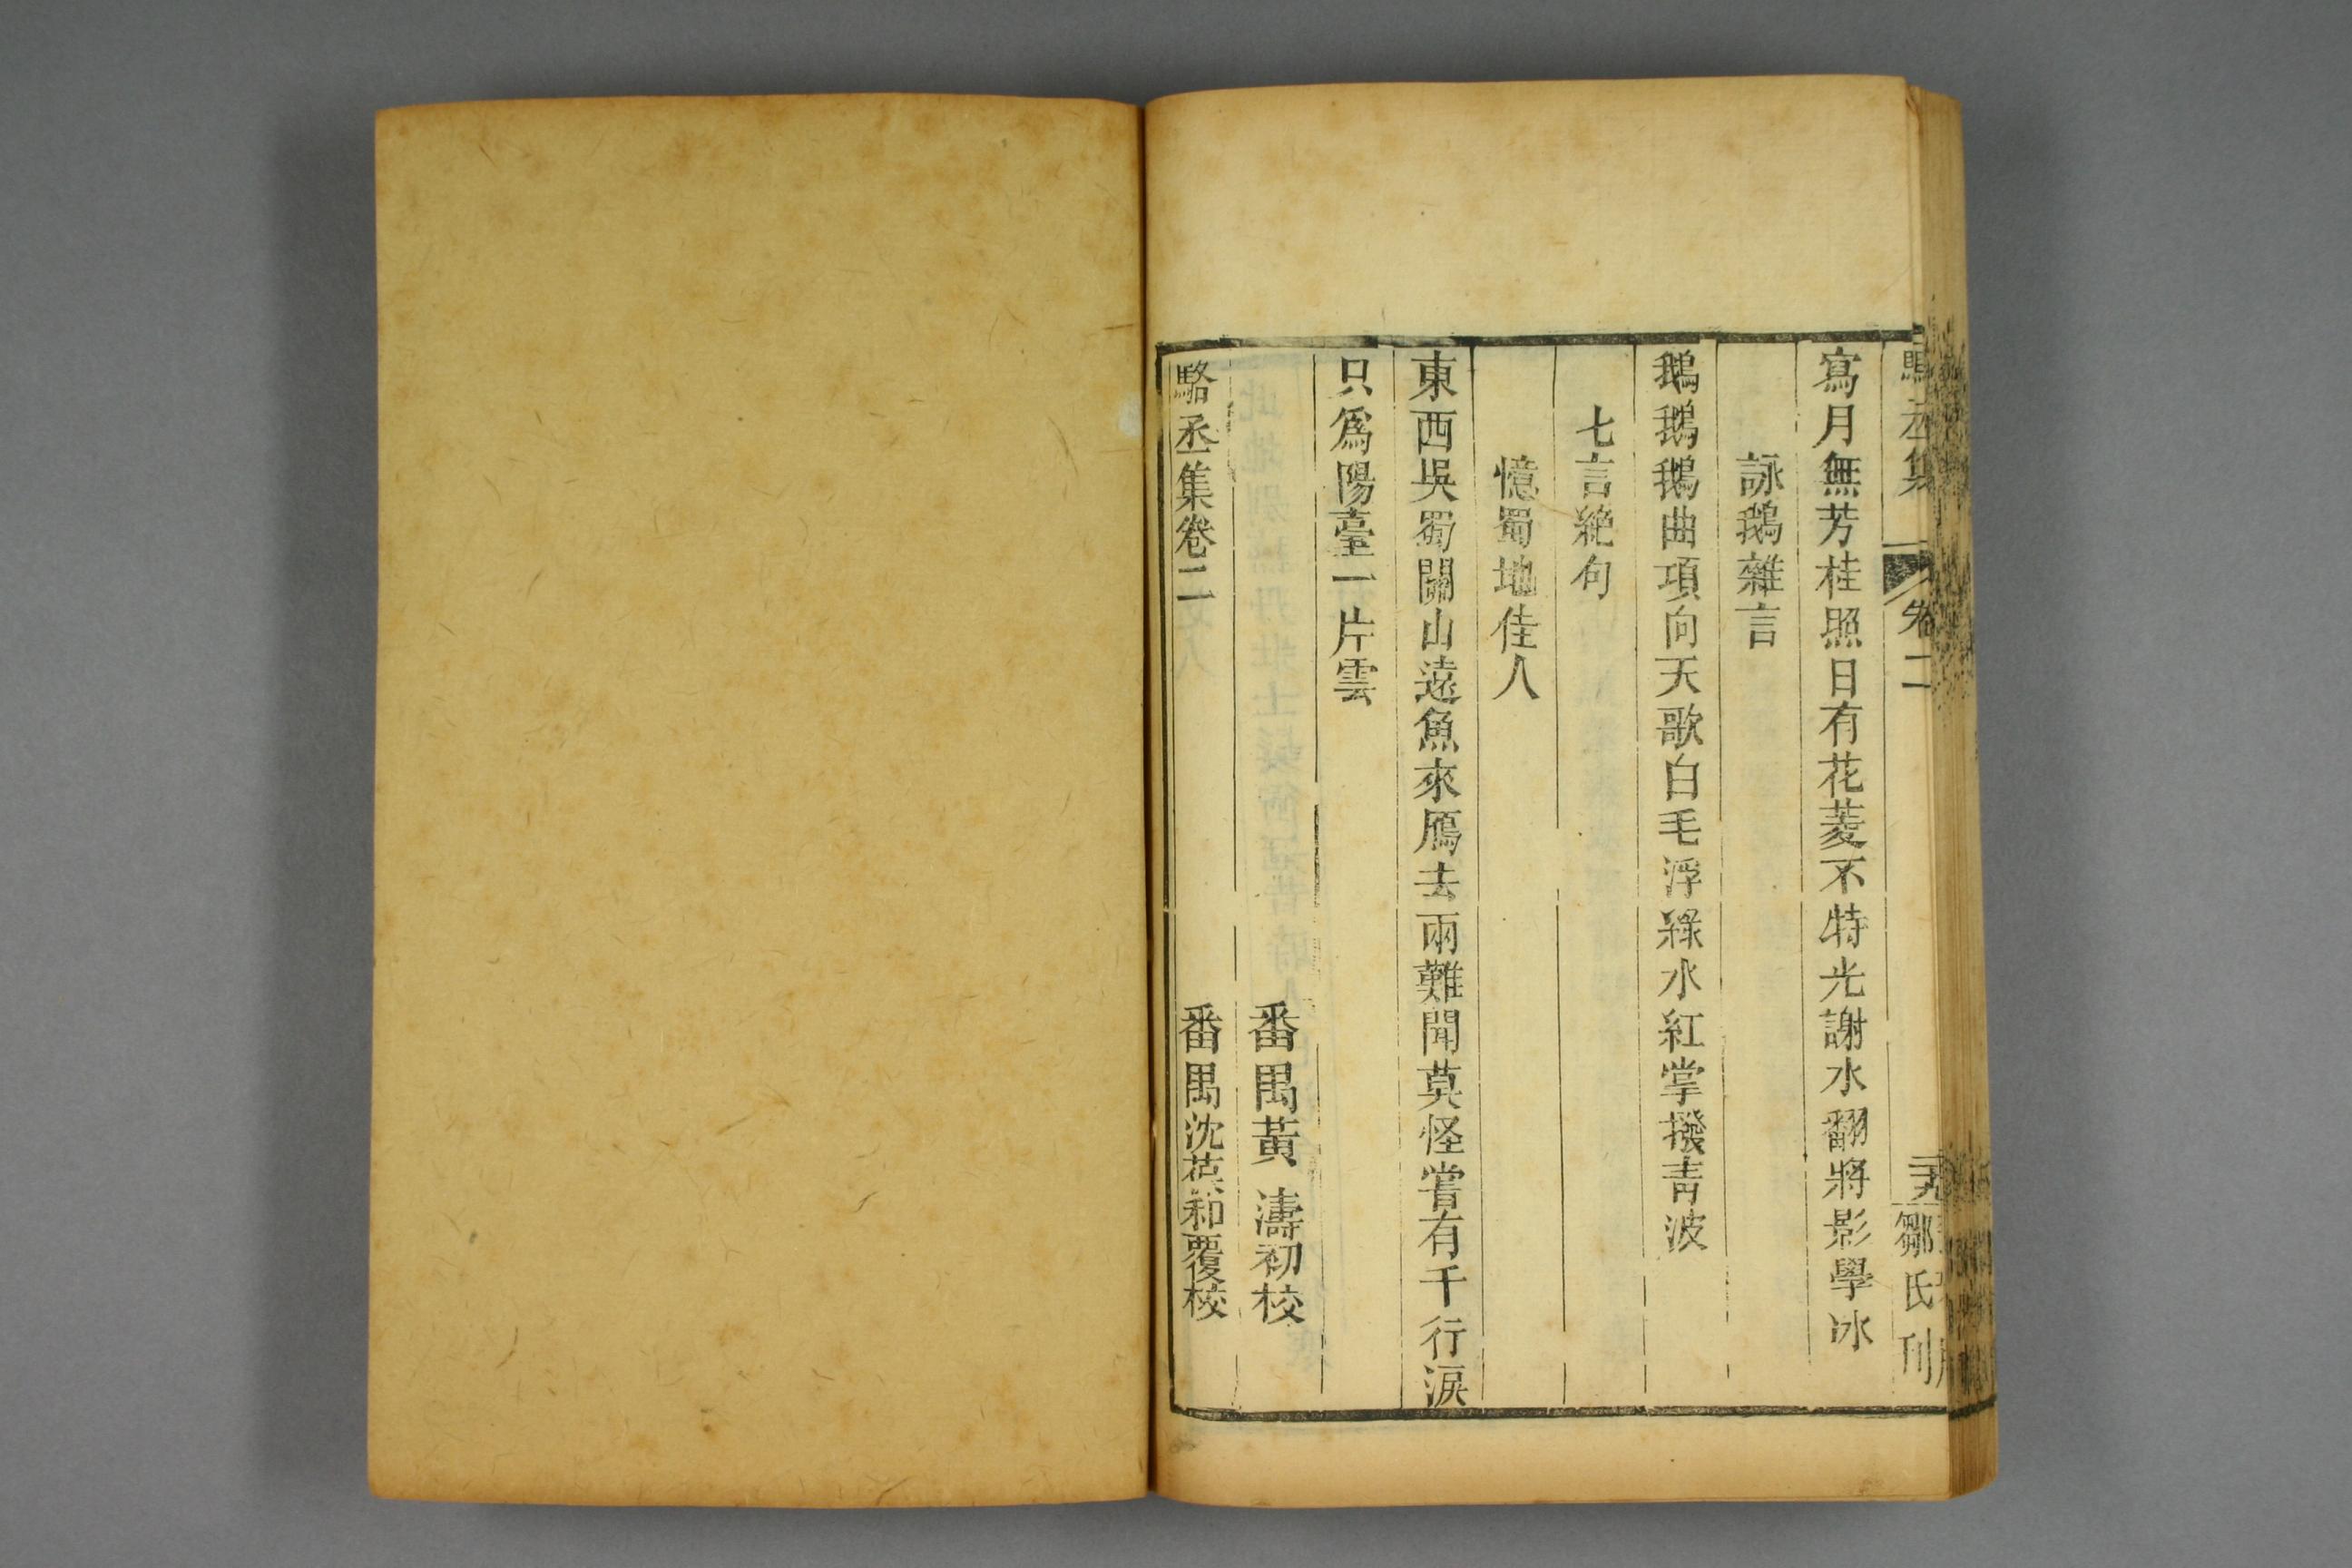 駱丞集
卷二
鄒氏刊
寫月無芳桂照日有花菱不特光謝水翻將影學冰
詠鵝雜言
鵝鵝鵝曲項向天歌白毛浮綠水紅掌撥靑波
七言絶句
憶蜀地佳人
東西吳蜀關山遠魚來鴈去兩難聞莫怪嘗有千行淚
只爲陽臺一片雲
番禺黃濤初校
駱丞集卷二
番禺沈葆和覆校